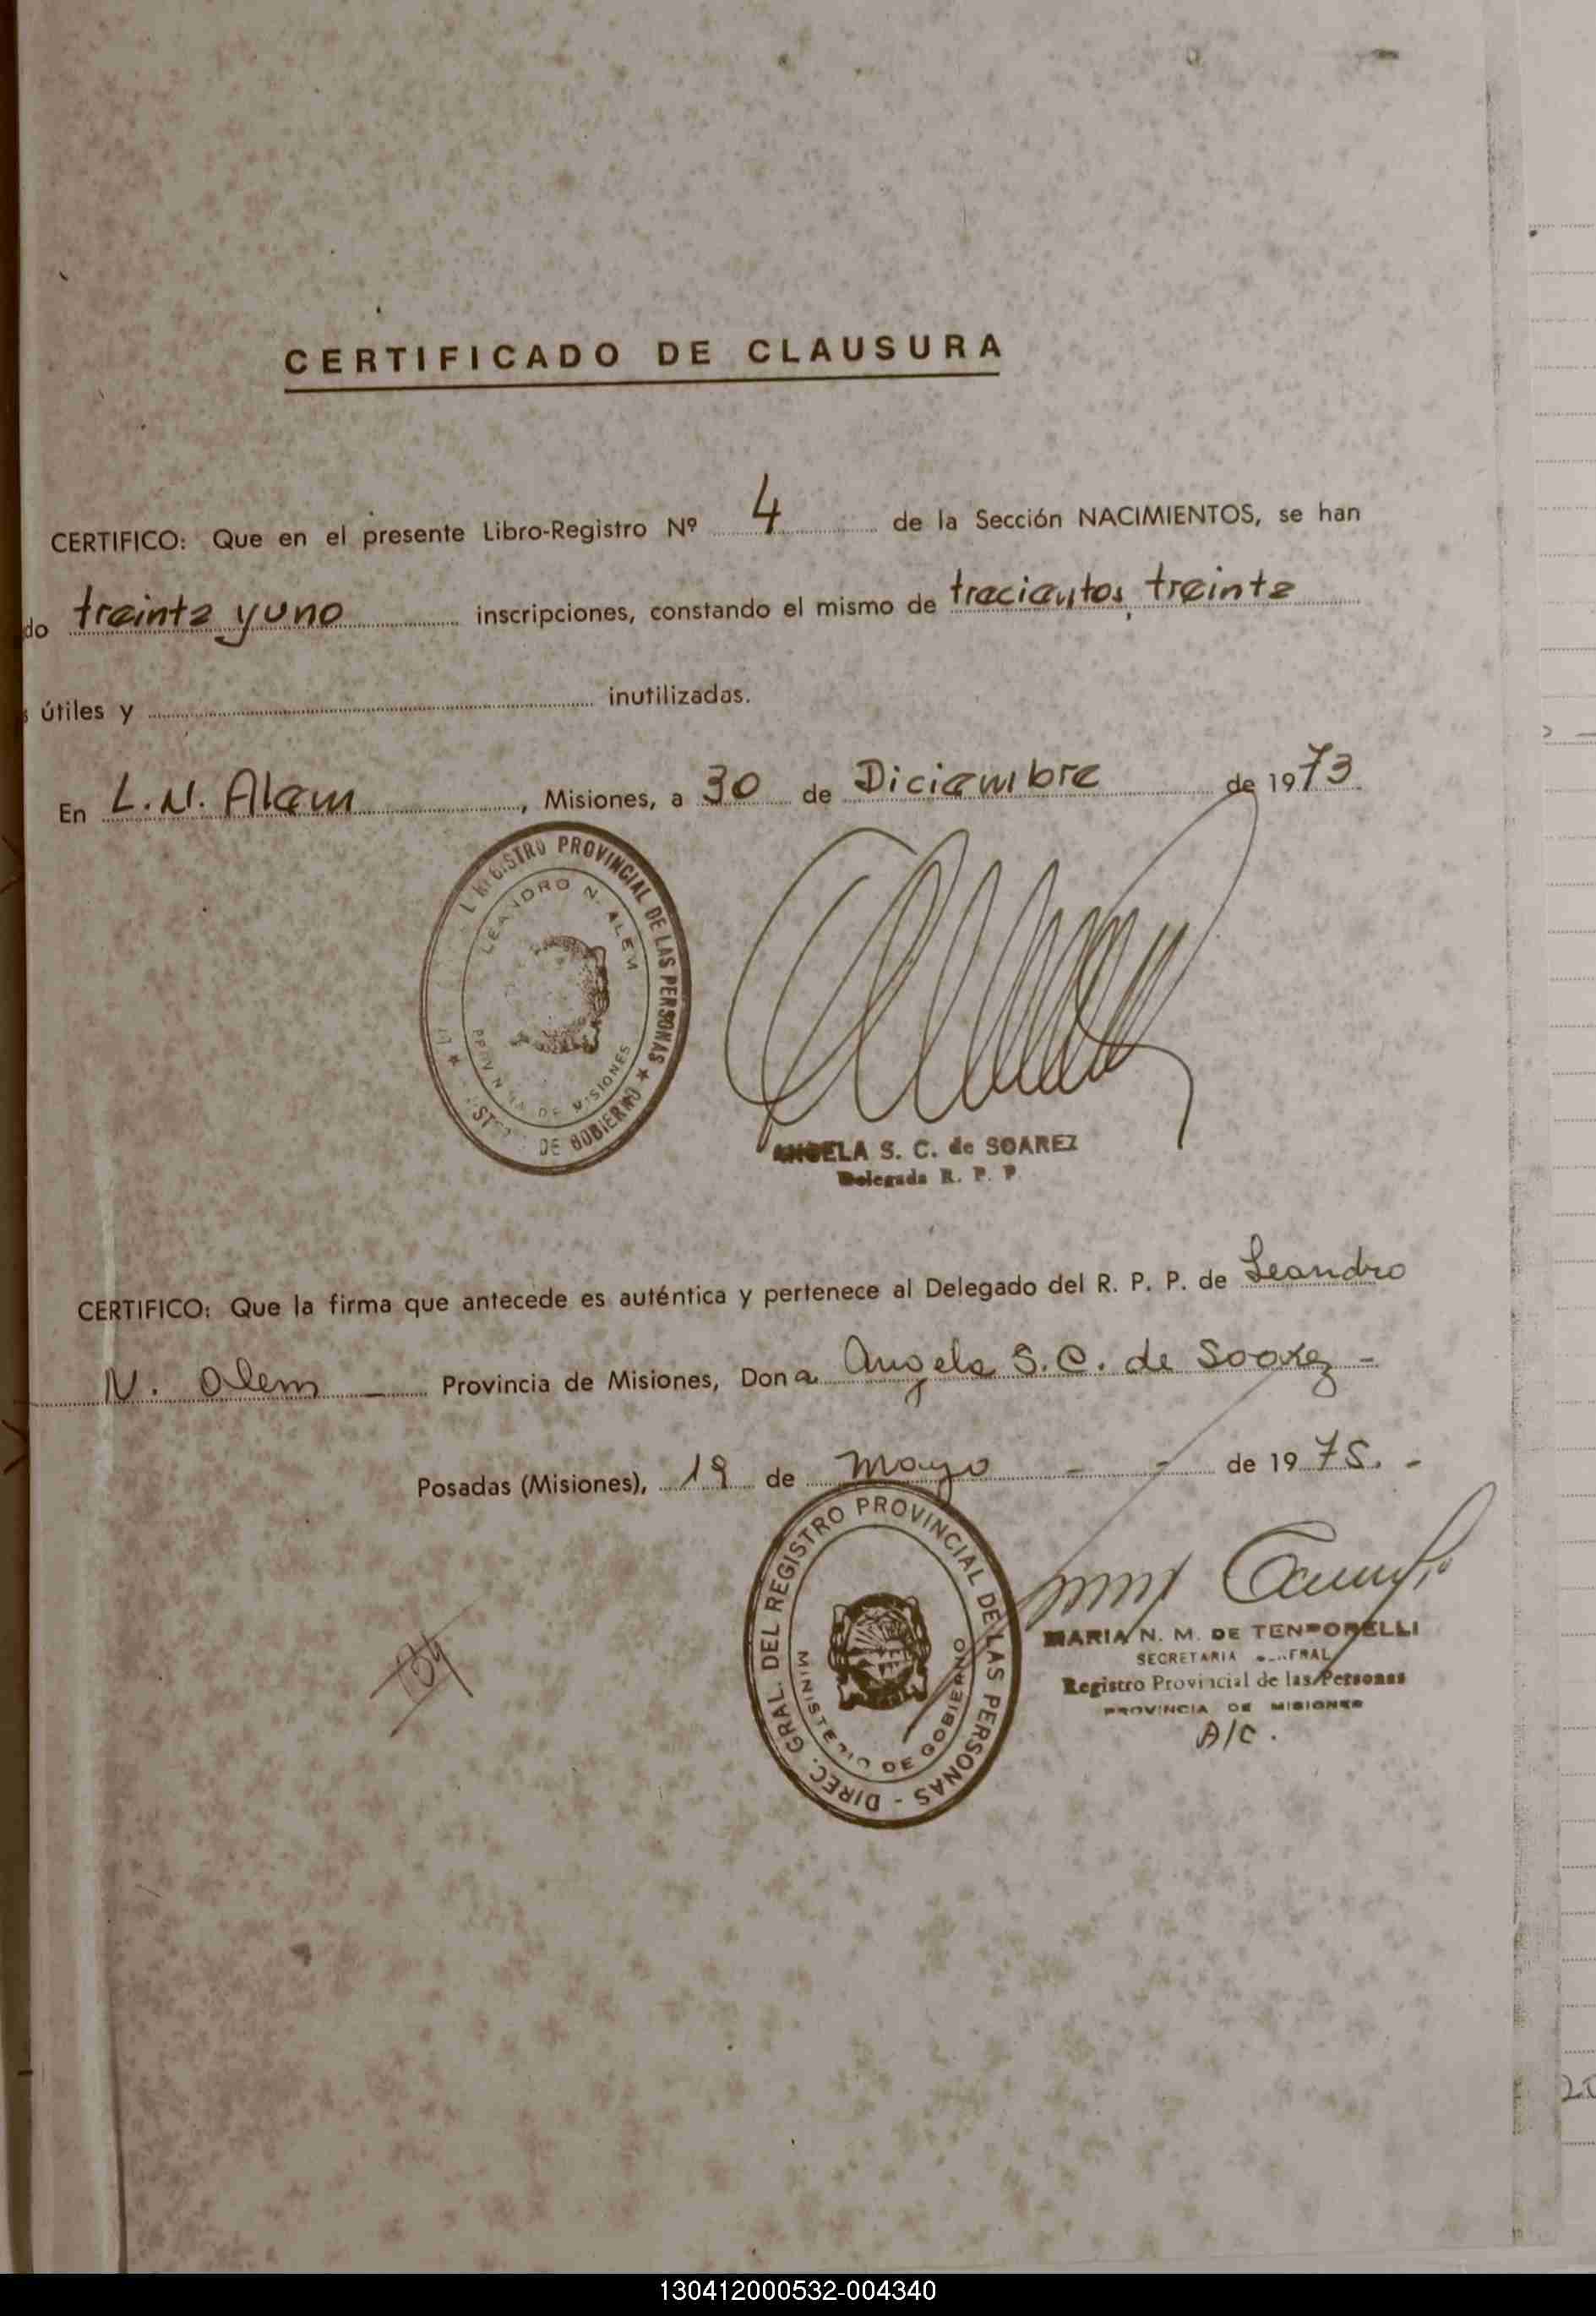 CERTIFICADO DE CLAUSURA
CERTIFICO: Que en el presente Libro-Registro Nº 4 de la Sección NACIMIENTOS, se han
do treinta y uno inscripciones, constando el mismo de trecientos treinta
s útiles y inutilizadas.
En L. N. Alem, Misiones, a 30 de Diciembre de 1973
REGISTRO PROVINCIAL DE LAS PERSONAS ★
LEANDRO N. ALEM
DE MISIONES
DE GOBIERNO
ANGELA S. C. de SOAREZ
Delegada R. P. P.
CERTIFICO: Que la firma que antecede es auténtica y pertenece al Delegado del R. P. P. de Leandro
N. Alem - Provincia de Misiones, Dona Angela S. C. de Soarez -
Posadas (Misiones), 19 de mayo - - de 1975. -
DIREC. GRAL. DEL REGISTRO PROVINCIAL DE LAS PERSONAS -
MINISTERIO DE GOBIERNO
MARIA N. M. DE TEMPORELLI
SECRETARIA GENERAL
Registro Provincial de las Personas
PROVINCIA DE MISIONES
A/C.
130412000532-004340